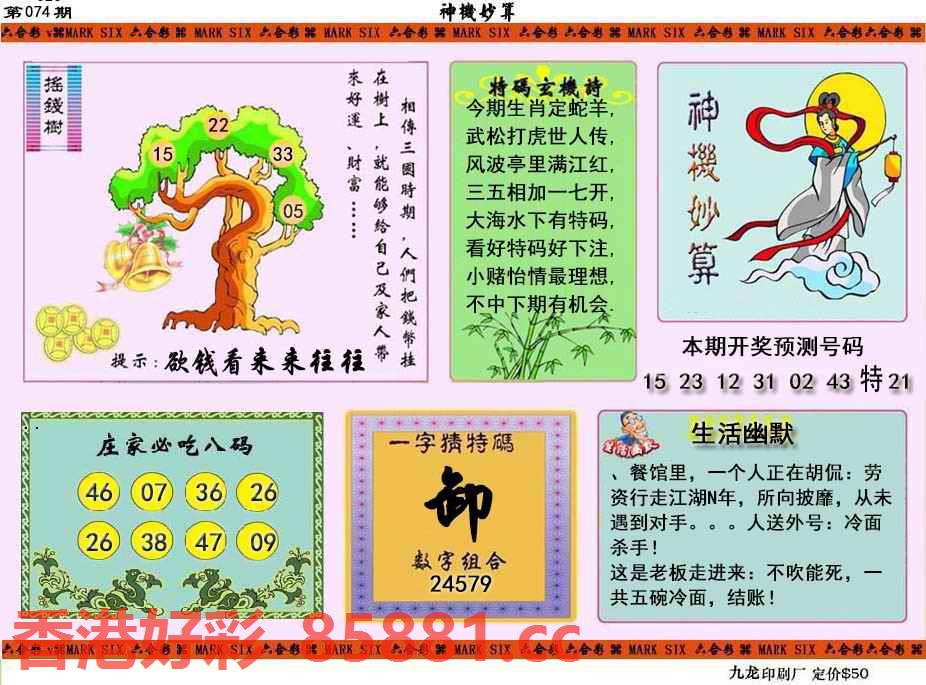 第074期
神機妙算
六合彩 MARK SIX 六合彩 MARK SIX 六合彩 MARK SIX 六合彩 MARK SIX 六合彩 MARK SIX 六合彩 MARK SIX 六合彩 MARK SIX 六合彩
搖錢樹
相傳三國時期，人們把錢幣挂
在樹上，就能够給自己及家人帶
來好運、財富……
22
15
33
05
提示：欲钱看来来往往
特碼玄機詩
今期生肖定蛇羊,
武松打虎世人传,
风波亭里满江红,
三五相加一七开,
大海水下有特码,
看好特码好下注,
小赌怡情最理想,
不中下期有机会.
神機妙算
本期开奖预测号码
15 23 12 31 02 43 特 21
庄家必吃八码
46 07 36 26
26 38 47 09
一字猜特碼
卸
数字组合
24579
生活幽默
生活幽默
、餐馆里，一个人正在胡侃：劳
资行走江湖N年，所向披靡，从未
遇到对手。。。人送外号：冷面
杀手！
这是老板走进来：不吹能死，一
共五碗冷面，结账！
香港好彩 85881.cc
六合彩 MARK SIX 六合彩 MARK SIX 六合彩 MARK SIX 六合彩 MARK SIX 六合彩 MARK SIX 六合彩 MARK SIX 六合彩 MARK SIX 六合彩
九龙印刷厂 定价$50